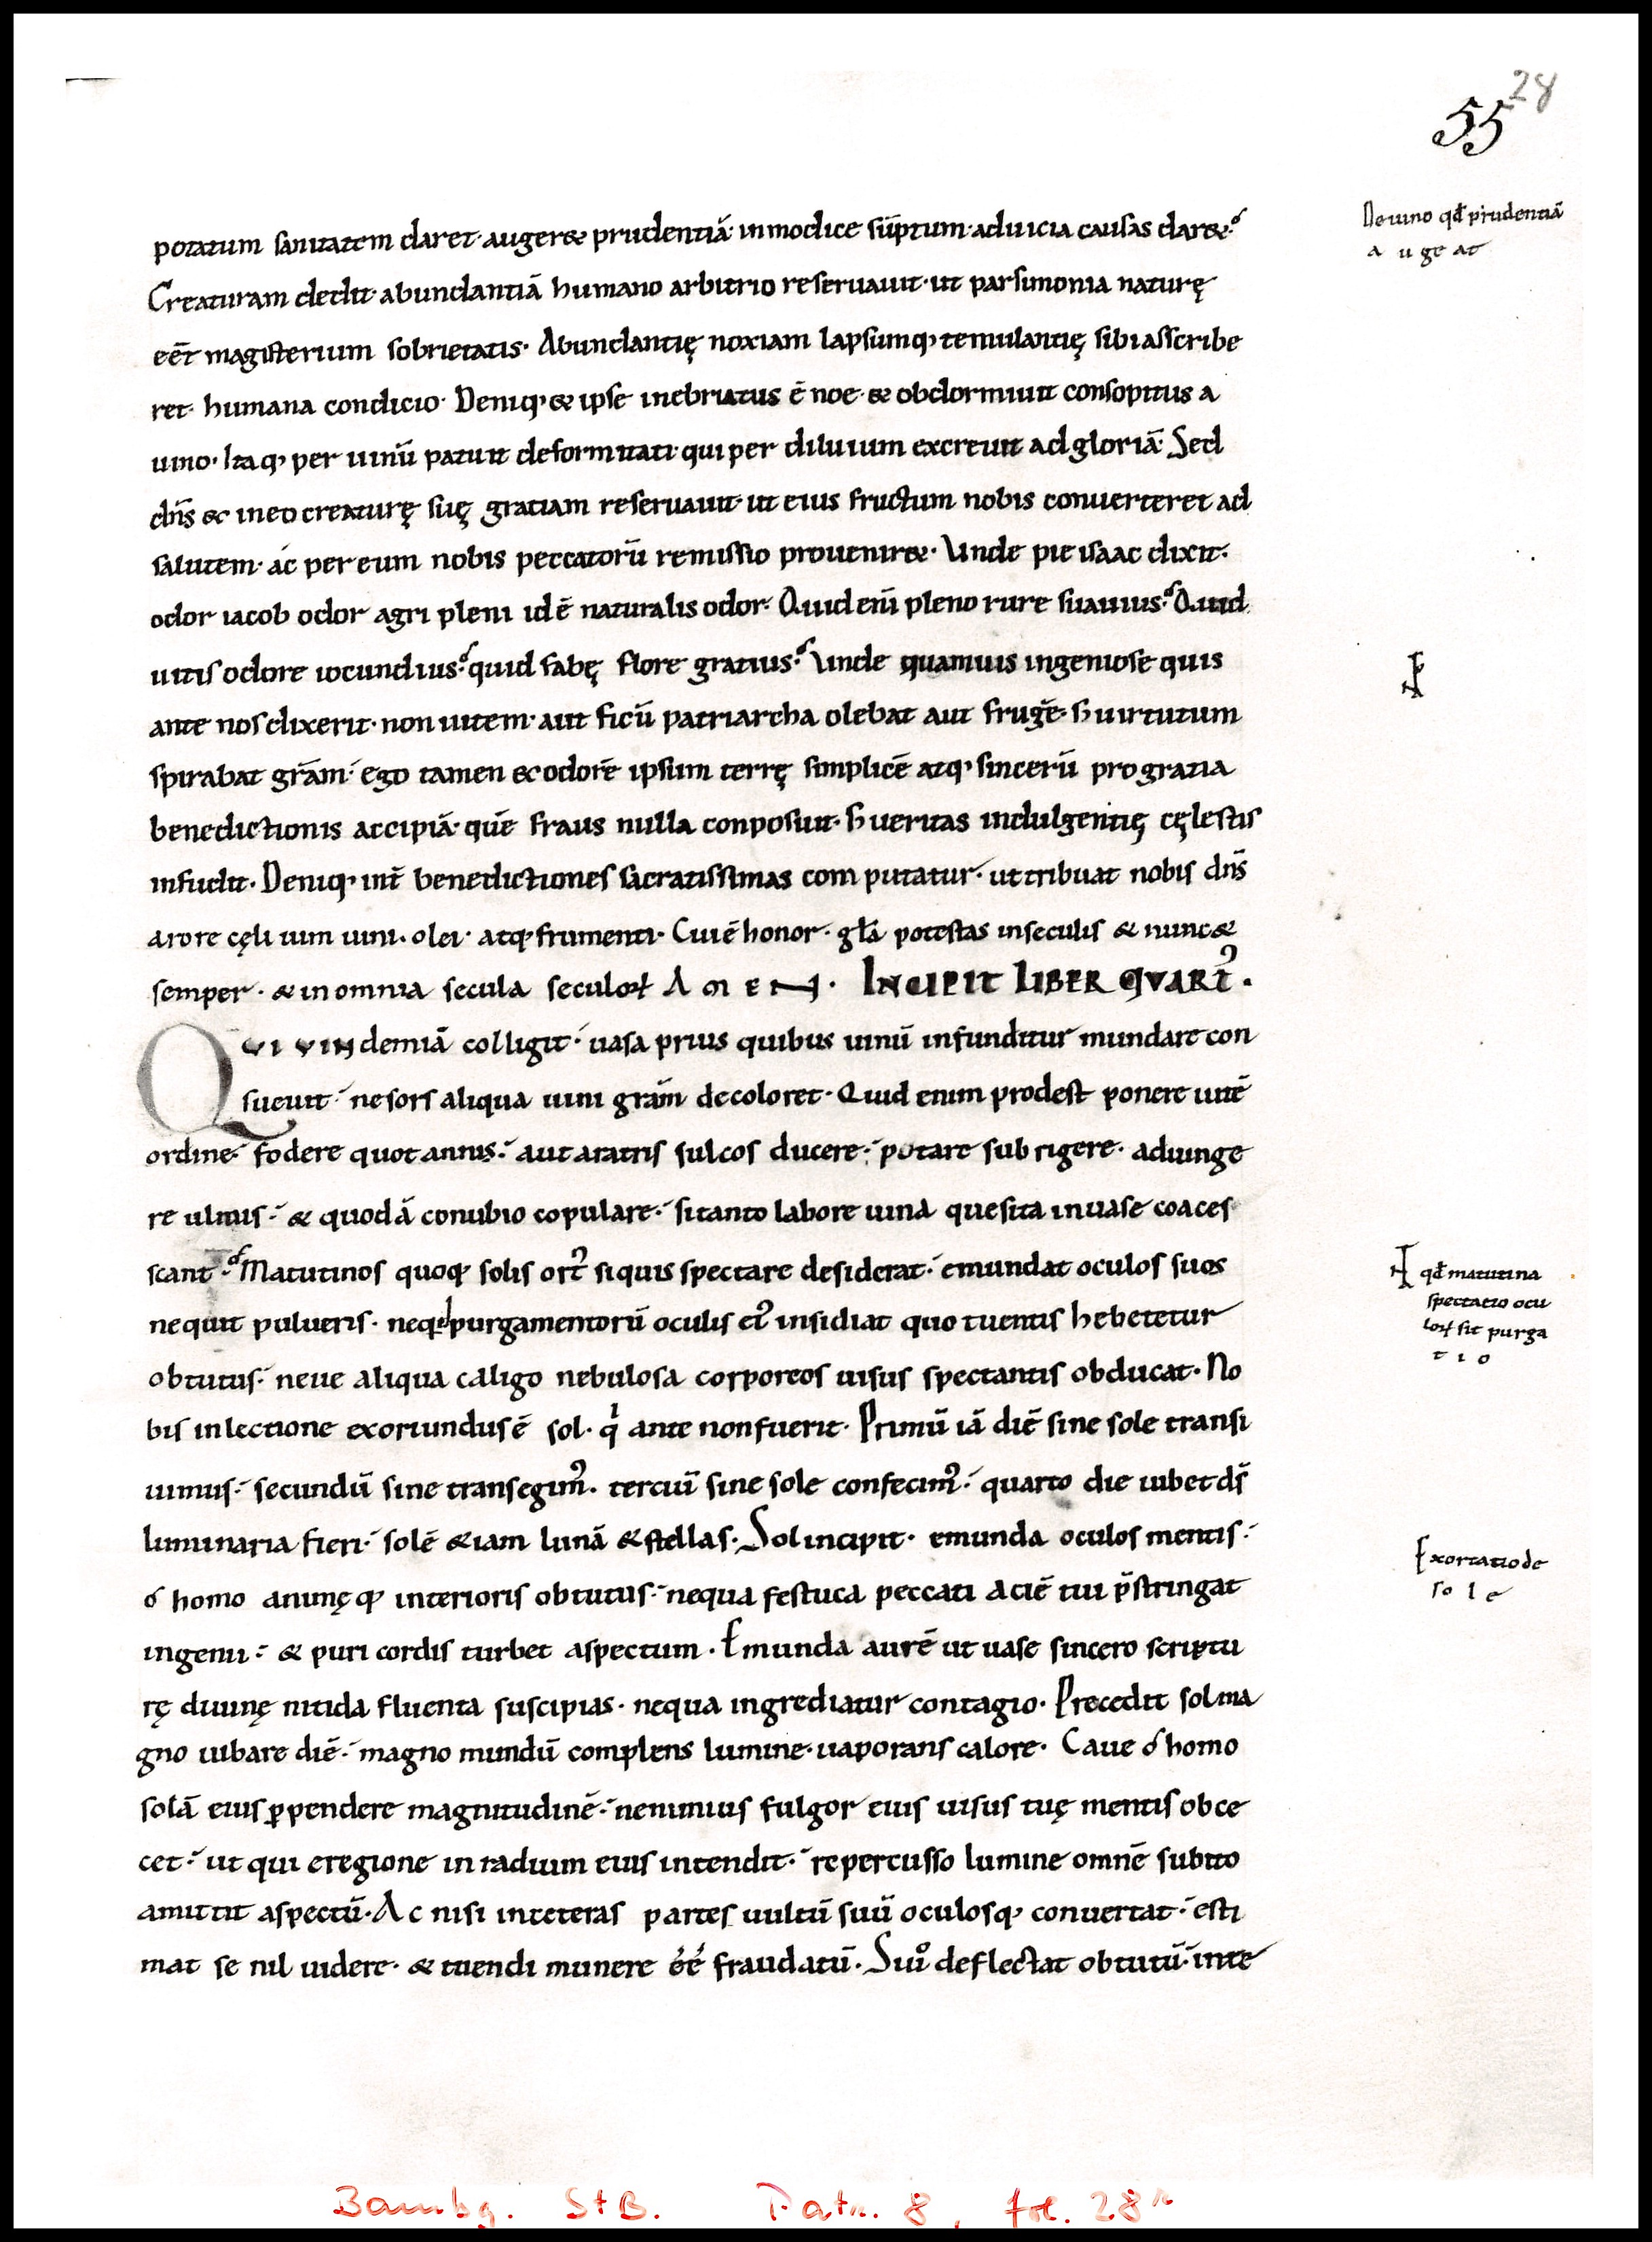 28
55
potatum sanitatem daret· auger& prudentiā· inmodice sūptum· aduicia causas dar&·
Creaturam dedit· abundantiā humano arbitrio reseruauit· ut parsimonia naturę
eēt magisterium sobrietatis· Abundantię noxiam lapsumq; temulantię sibi asscribe
ret· humana condicio· Deniq; & ipse inebriatus ē noe· & obdormiuit consopitus a
uino· Itaq; per uinū patuit deformitati· qui per diluuium excreuit ad gloriā· Sed
dn̄s & in eo creaturę suę gratiam reseruauit· ut eius fructum nobis conuerteret ad
salutem· ác per eum nobis peccatorū remissio prouenir&· Unde pie isaac dixit·
odor iacob odor agri pleni idē naturalis odor· Quid eni̅ pleno rure suauius· Quid
uitis odore iocundius· quid fabę flore gratius· Unde quamuis ingeniose quis
ante nos dixerit· non uitem· aut ficū patriarcha olebat aut frugē· ħ uirtutum
spirabat gr̄am· ego tamen & odorē ipsum terrę simplicē atq; sincerū pro gratia
benedictionis accipiā· quē fraus nulla conposuit· ħ ueritas indulgentię cęlestis
infudit· Deniq; int̄ benedictiones sacratissimas computatur· ut tribuat nobis dn̄s
a rore cęli uim uini· olei· atq; frumenti· Cui ē honor· gl̄a potestas in seculis & nunc &
semper· & in omnia secula seculoꝝ AMEN· INCIPIT LIBER QVART᾽·
QVI VINdemiā colligit· uasa prius quibus uinū infunditur mundare con
sueuit· ne sors aliqua uini grām decoloret· Quid enim prodest ponere uitē
ordine· fodere quot annis· aut aratris sulcos ducere· putare subrigere· adiunge
re ulmis· & quodā conubio copulare· si tanto labore uina quesita in uase coaces
scant· Matutinos quoq; solis ort᾽ siquis spectare desiderat· emundat oculos suos
nequit pulueris· neq; purgamentorū oculis ei᾽ insidiat quo tuentis hebetetur
obtutus· neue aliqua caligo nebulosa corporeos uisus spectantis obducat· No
bis in lectione exoriundus ē sol· qi ante non fuerit· Primū iā diē sine sole transi
uimus· secundū sine transegim᾽· terciū sine sole confecim᾽· quarto die iubet ds̄
luminaria fieri· solē &iam lunā & stellas· Sol incipit· emunda oculos mentis·
ó homo animęq; interioris obtutus· nequa festuca peccati aciē tui p̄stringat
ingenii· & puri cordis turbet aspectum· Emunda aurē ut uase sincero scriptu
rę diuinę nitida fluenta suscipias· nequa ingrediatur contagio· Precedit sol ma
gno iubare diē· magno mundū complens lumine· uaporans calore· Caue ó homo
solā eius ꝑpendere magnitudinē· ne nimius fulgor eius uisus tuę mentis obce
cet· ut qui eregione in radium eius intendit· repercusso lumine omnē subito
amittit aspectū· Ac nisi in ceteras partes uultū suū oculosq; conuertat· esti
mat se nil uidere· & tuendi munere éé fraudatū· Sui deflectat obtutū· inte
De uino qđ prudentiā
augeat
qđ matutina
spectatio ocu
loꝝ sit purga
tio
Exortatio de
sole
Bambg. StB. Patr. 8, fol. 28r